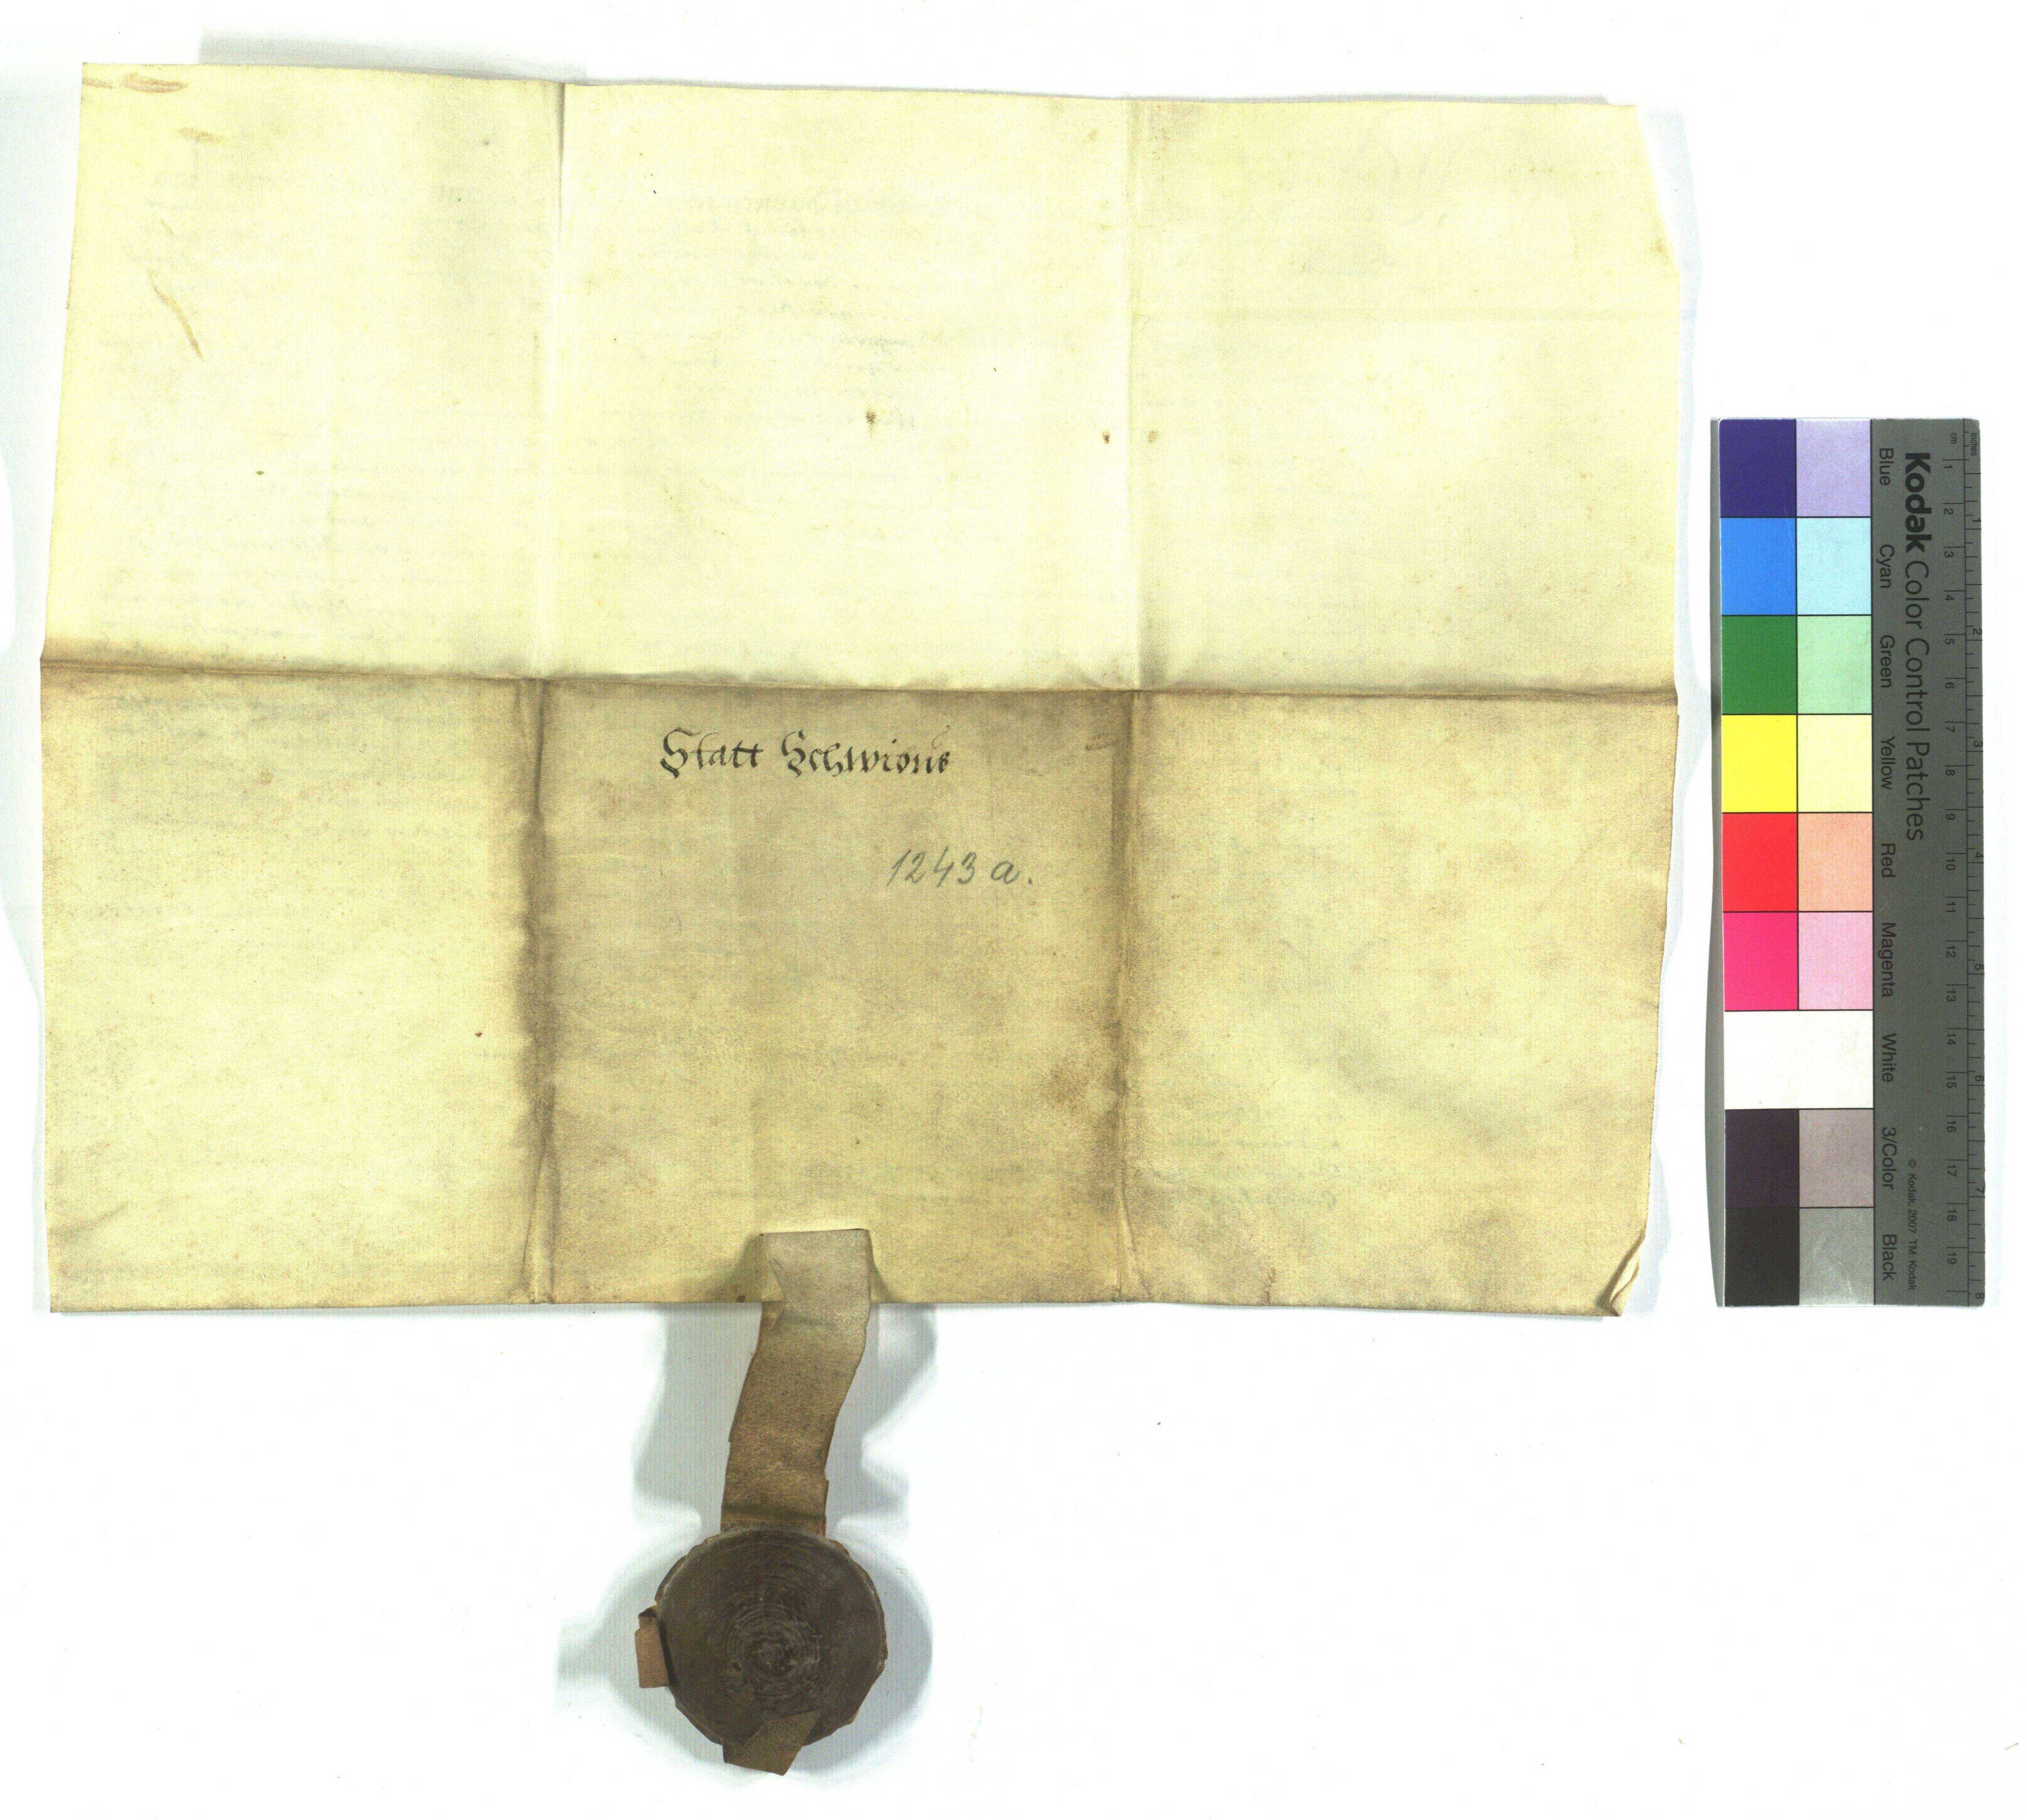 Statt Schwirus
1243 a.
Kodak Color Control Patches
Blue Cyan Green Yellow Red Magenta White 3/Color Black
© Kodak, 2007 TM: Kodak
cm 1 2 3 4 5 6 7 8 9 10 11 12 13 14 15 16 17 18 19
inches 1 2 3 4 5 6 7 8